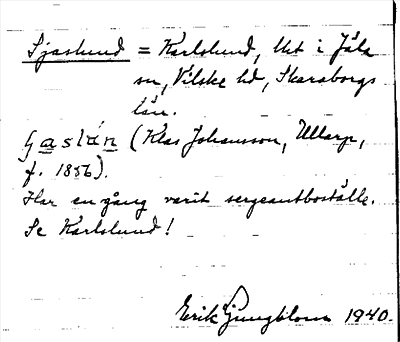 Sjaslund = Karlslund, Uet i Jäla
sn, Vilske hd, Skaraborgs
län.
(Klas Johansson, Ullarp,
f. 1856).
Har en gång varit sergeantboställe.
Se Karlslund!
Erik Ljungblom 1940.